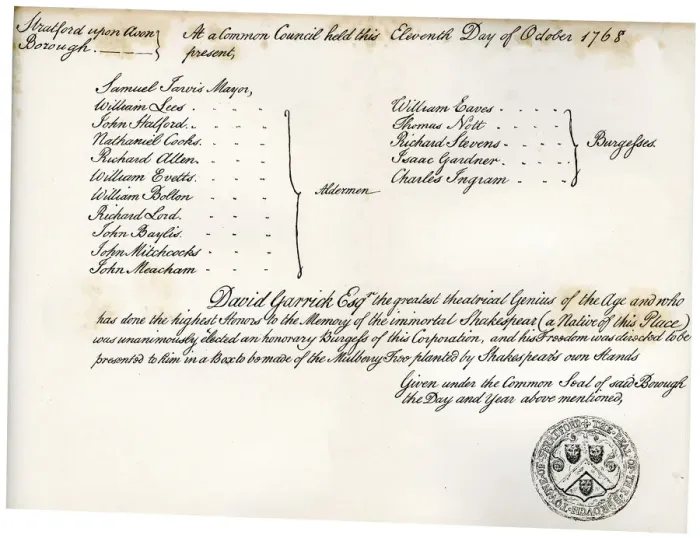 Stratford upon Avon
Borough.
At a Common Council held this Eleventh Day of October 1768
present,
Samuel Jarvis Mayor,
William Lees
John Halford
Nathaniel Cooks
Richard Allen
William Evetts
William Bolton
Richard Lord
John Baylis
John Mitchcocks
John Meacham
Aldermen
William Eaves
Thomas Nott
Richard Stevens
Isaac Gardner
Charles Ingram
Burgeſses.
David Garrick Esqr. the greatest theatrical Genius of the Age and who
has done the highest Honors to the Memory of the immortal Shakespear (a Native of this Place)
was unanimously elected an honorary Burgeſs of this Corporation, and his Freedom was directed to be
presented to him in a Box to be made of the Mulberry Tree planted by Shakespears own Hands
Given under the Common Seal of said Borough
the Day and Year above mentioned,
THE SEAL OF THE TOWNE OF STRATFORD